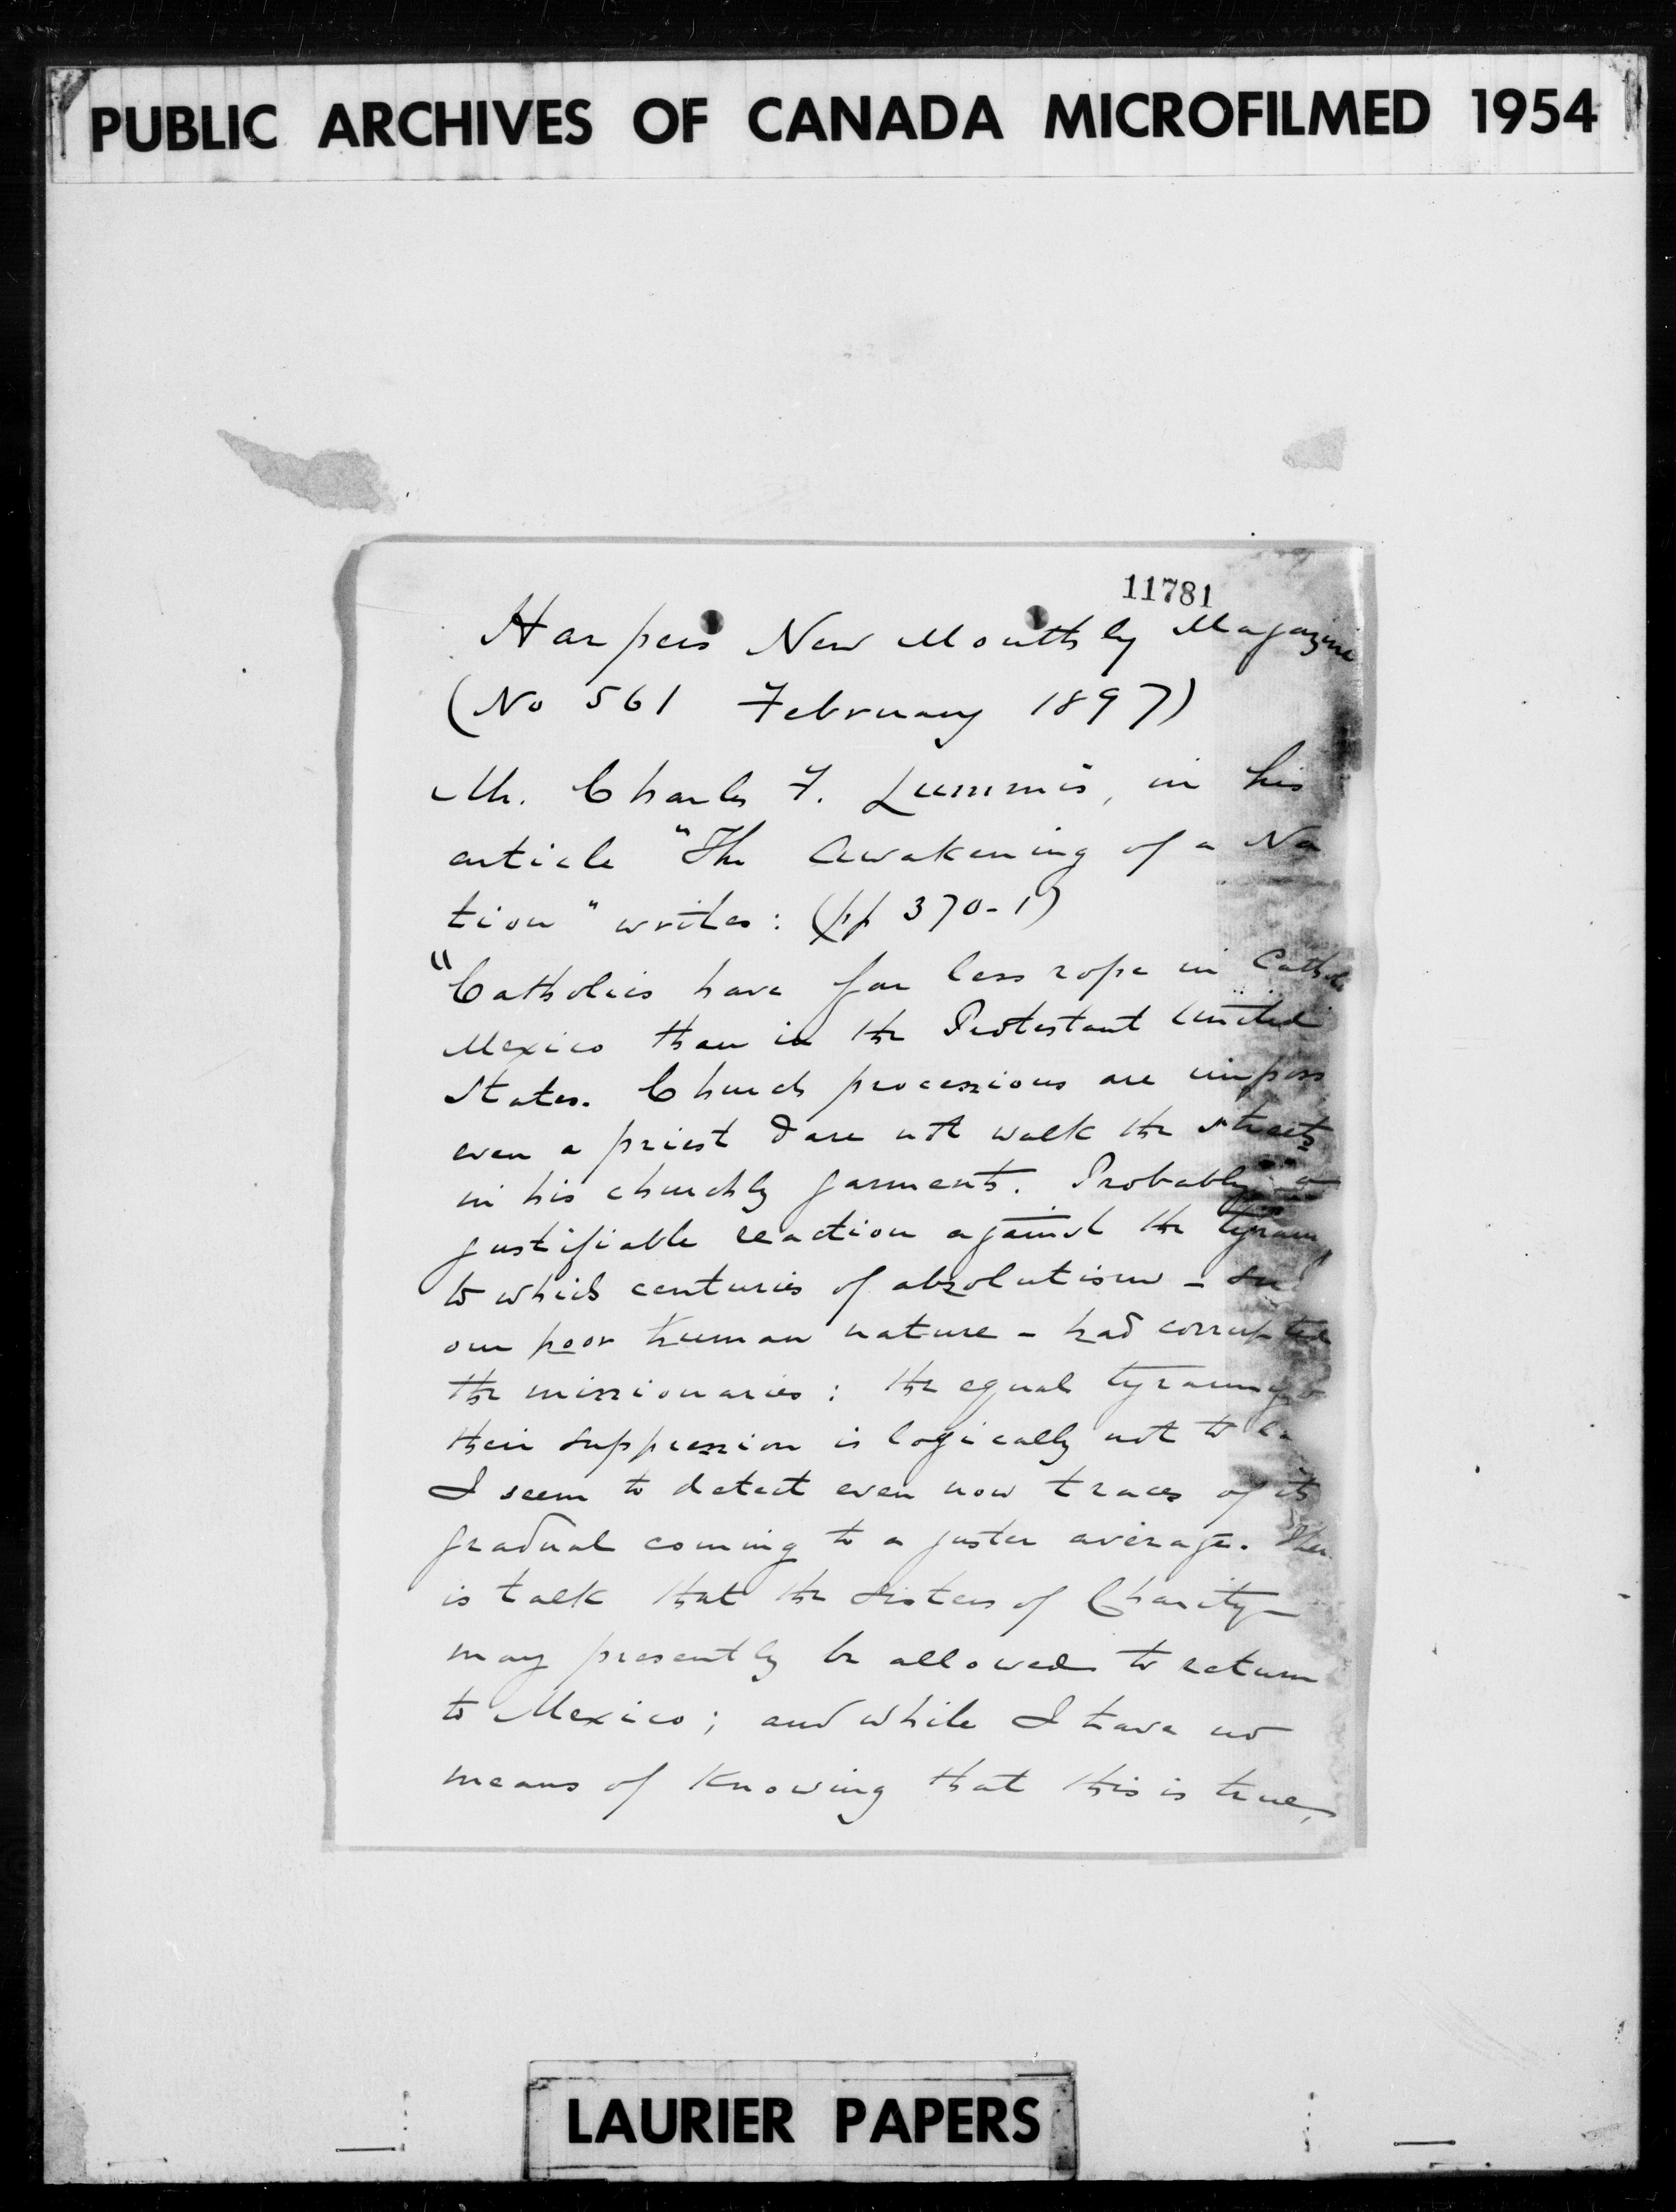 PUBLIC ARCHIVES OF CANADA MICROFILMED 1954
11781
Harpers New Monthly Magazine
(No 561 February 1897)
Mr. Charles F. Lummis, in his
article "The Awakening of a Na
tion" writes: (pp 370-1)
"Catholics have far less rope in Catholic
Mexico than in the Protestant United
States. Church processions are imposs
even a priest dare not walk the streets
in his churchly garments. Probably a
justifiable reaction against the tyranny
to which centuries of absolutism -
our poor human nature - had corrupted
the missionaries: the equal tyranny
their suppression is logically not to
I seem to detect even now traces of its
gradual coming to a juster average. Ther
is talk that the Sisters of Charity
may presently be allowed to return
to Mexico; and while I have no
means of knowing that this is true,
LAURIER PAPERS